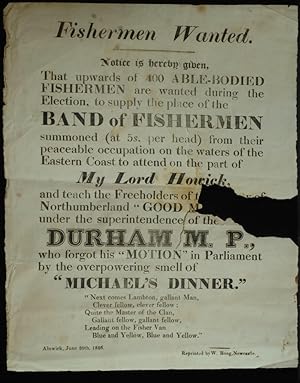 Fishermen Wanted.
Notice is hereby given,
That upwards of 400 ABLE-BODIED
FISHERMEN are wanted during the
Election, to supply the place of the
BAND of FISHERMEN
summoned (at 5s. per head) from their
peaceable occupation on the waters of the
Eastern Coast to attend on the part of
My Lord Howick,
and teach the Freeholders of
Northumberland "GOOD
under the superintendence of the
DURHAM M. P.,
who forgot his "MOTION" in Parliament
by the overpowering smell of
"MICHAEL'S DINNER."
"Next comes Lambton, gallant Man,
Clever fellow, clever fellow;
Quite the Master of the Clan,
Gallant fellow, gallant fellow,
Leading on the Fisher Van
Blue and Yellow, Blue and Yellow."
Alnwick, June 20th, 1826.
Reprinted by W. Boag, Newcastle.